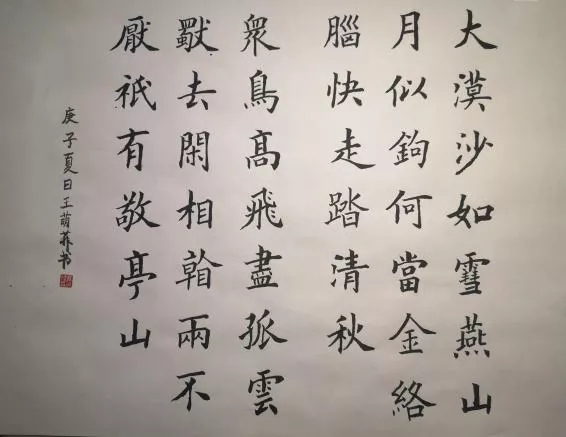 大漠沙如雪燕山
月似鉤何當金絡
腦快走踏清秋
衆鳥髙飛盡孤雲
獨去閑相看兩不
厭衹有敬亭山
庚子夏日王萌书